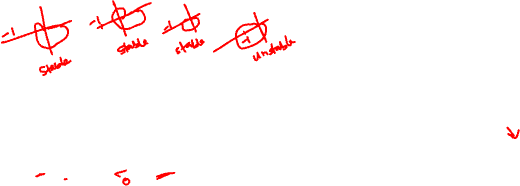 -1 -1 -1 -1
stable stable stable unstable